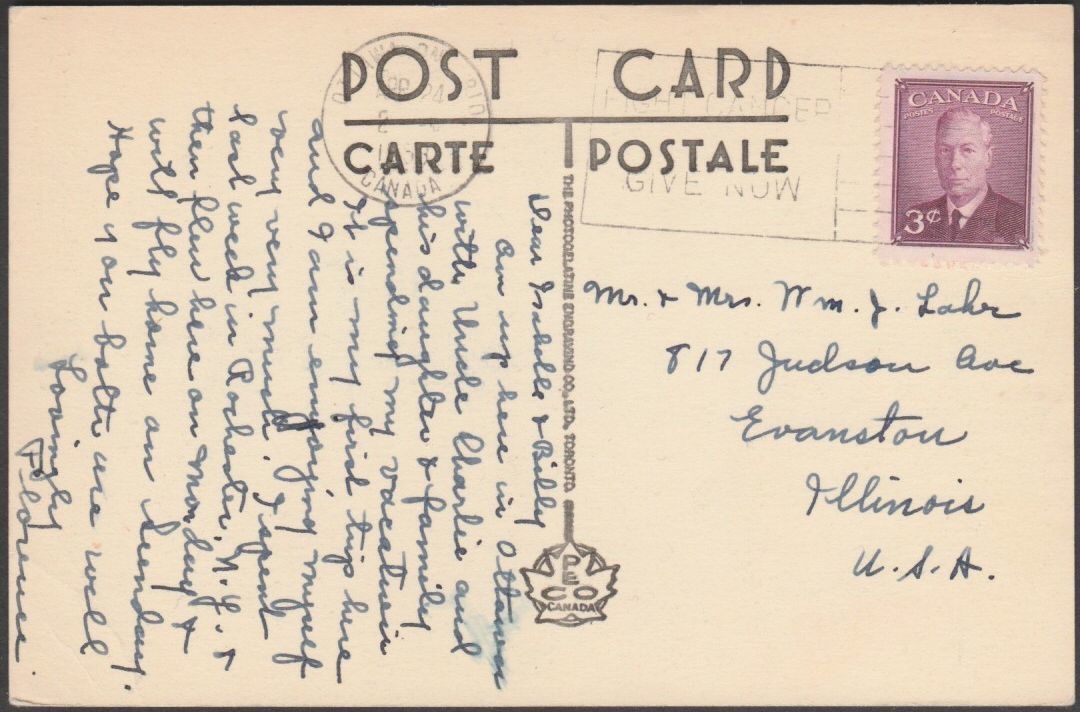 POST CARD
CARTE POSTALE
OTTAWA ONTARIO
24
CANADA
FIGHT CANCER
GIVE NOW
CANADA
POSTES POSTAGE
3¢
Dear Isabelle & Billy
Am up here in Ottawa
with Uncle Charlie and
his daughter & family
spending my vacation
It is my first trip here
and I am enjoying myself
very very much. I spent
last week in Rochester, N.Y. &
then flew here on Monday &
will fly home on Sunday.
Hope you both are well
Lovingly
Florence.
THE PHOTOGELATINE ENGRAVING CO., LTD. TORONTO.
PECO
CANADA
Mr. & Mrs. Wm. J. Lahr
817 Judson Ave
Evanston
Illinois
U.S.A.